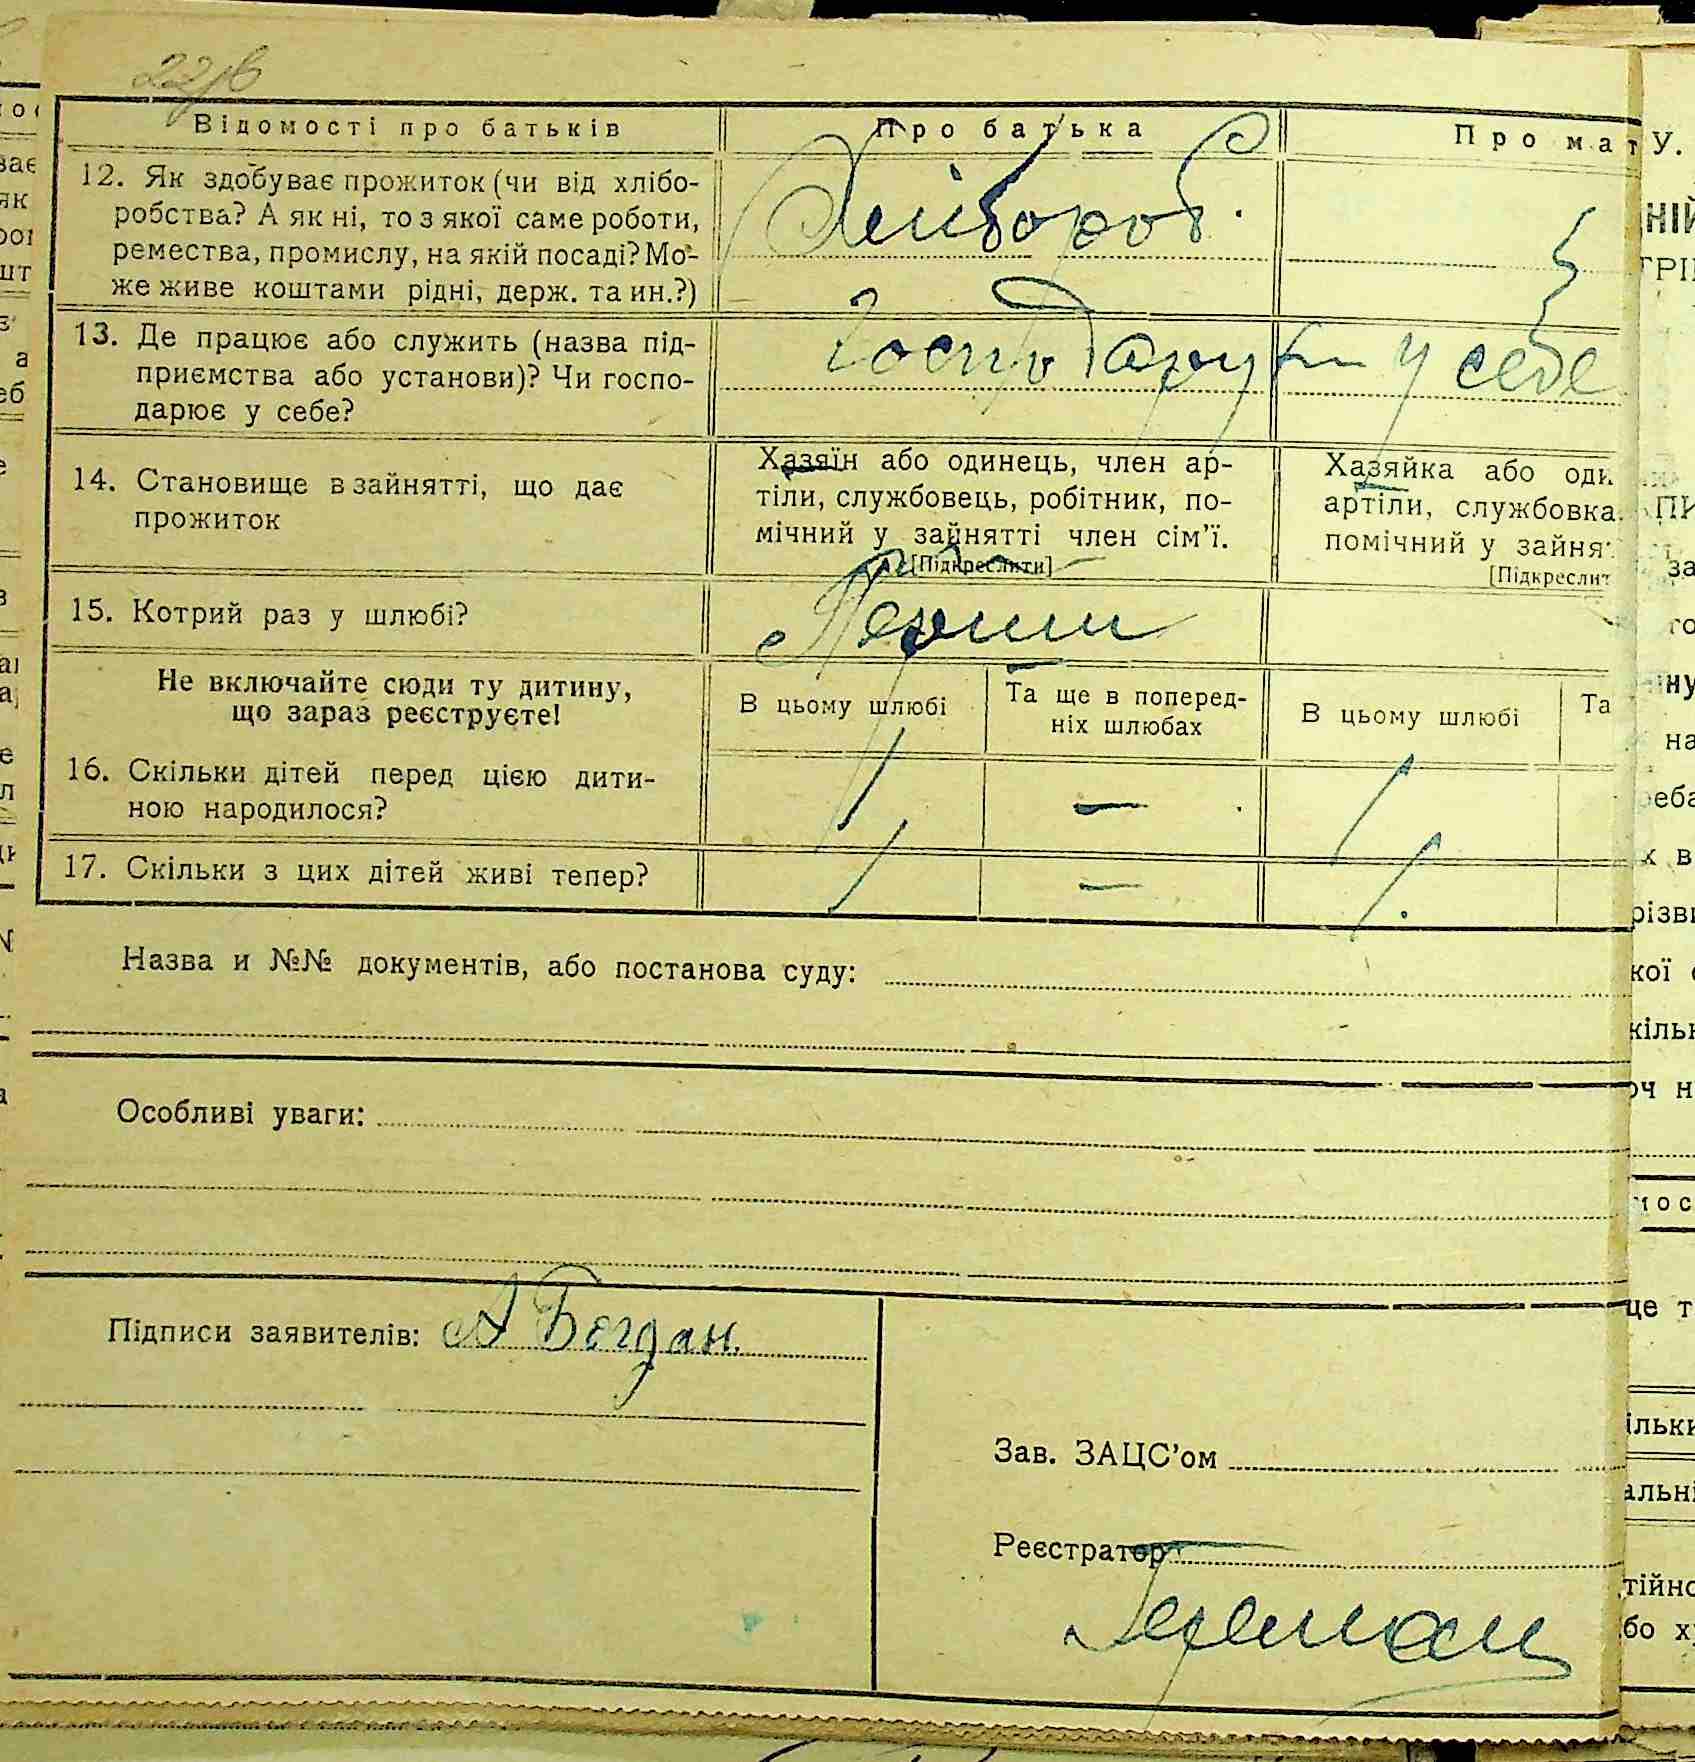 22/в
Відомості про батьків
Про батька
Про мат
12. Як здобуває прожиток (чи від хлібо-
робства? А як ні, то з якої саме роботи,
ремества, промислу, на якій посаді? Мо-
же живе коштами рідні, держ. та ин.?)
Хлібороб.
13. Де працює або служить (назва під-
приємства або установи)? Чи госпо-
дарює у себе?
у себе
14. Становище в зайнятті, що дає
прожиток
Хазяїн або одинець, член ар-
тіли, службовець, робітник, по-
мічний у зайнятті член сім'ї.
[Підкреслити]
Хазяйка або оди
артіли, службовка,
помічний у зайня
[Підкреслит
15. Котрий раз у шлюбі?
Перши
Не включайте сюди ту дитину,
що зараз реєструєте!
В цьому шлюбі
Та ще в поперед-
ніх шлюбах
В цьому шлюбі
Та
16. Скільки дітей перед цією дити-
ною народилося?
1 — 1
17. Скільки з цих дітей живі тепер?
1 — 1.
Назва и №№ документів, або постанова суду:
Особливі уваги:
Підписи заявителів: А Богдан.
Зав. ЗАЦС'ом
Реєстратор